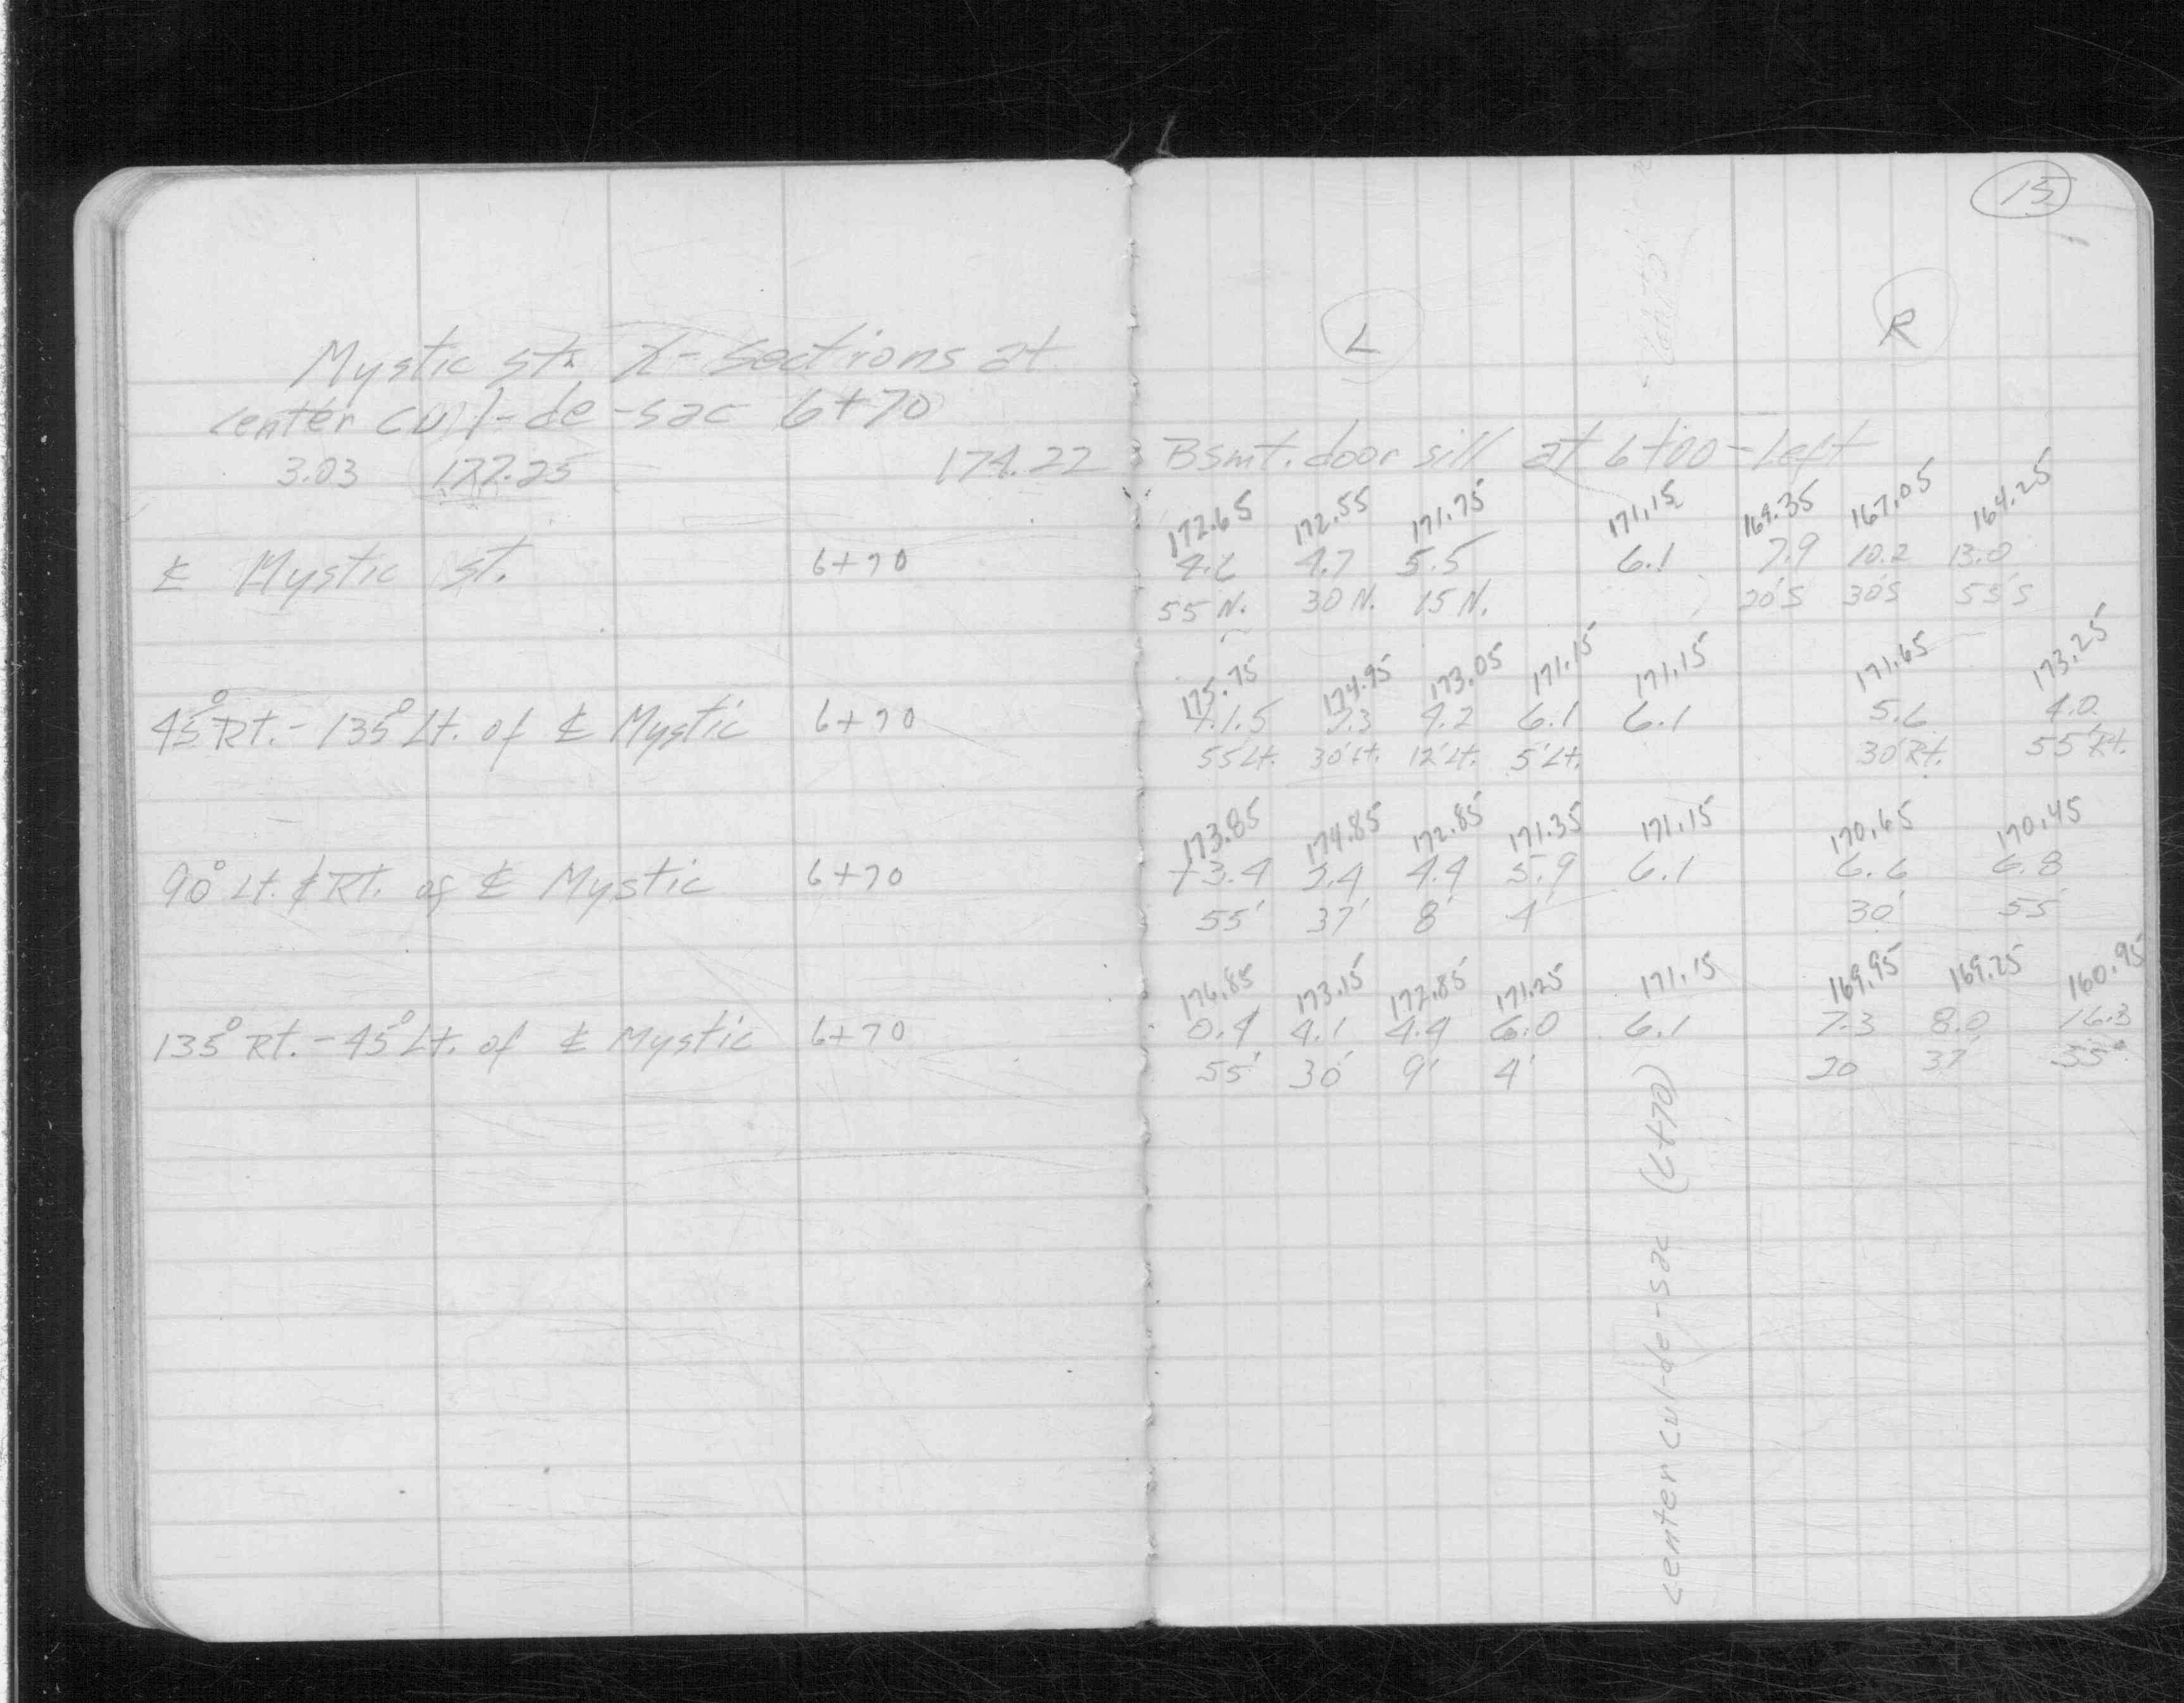 15
L R
Mystic St. X-Sections at
center cul-de-sac 6+70
3.03 177.25 174.22 Bsmt. door sill at 6+00 - Left
172.65 172.55 171.75 171.15 169.35 167.05 164.25
℄ Mystic St. 6+70 4.6 4.7 5.5 6.1 7.9 10.2 13.0
55 N. 30 N. 15 N. 20'S 30'S 55'S
175.75 174.95 173.05 171.15 171.15 171.65 173.25
45° Rt. - 135° Lt. of ℄ Mystic 6+70 +1.5 2.3 4.2 6.1 6.1 5.6 4.0
55 Lt. 30' Lt. 12' Lt. 5' Lt. 30' Rt. 55' Rt.
173.85 174.85 172.85 171.35 171.15 170.65 170.45
90° Lt. & Rt. of ℄ Mystic 6+70 +3.4 2.4 4.4 5.9 6.1 6.6 6.8
55' 37' 8' 4' 30' 55
176.85 173.15 172.85 171.25 171.15 169.95 169.25 160.95
135° Rt. - 45° Lt. of ℄ Mystic 6+70 0.4 4.1 4.4 6.0 6.1 7.3 8.0 16.3
55' 30' 9' 4' 20 37' 55'
center cul-de-sac (6+70)